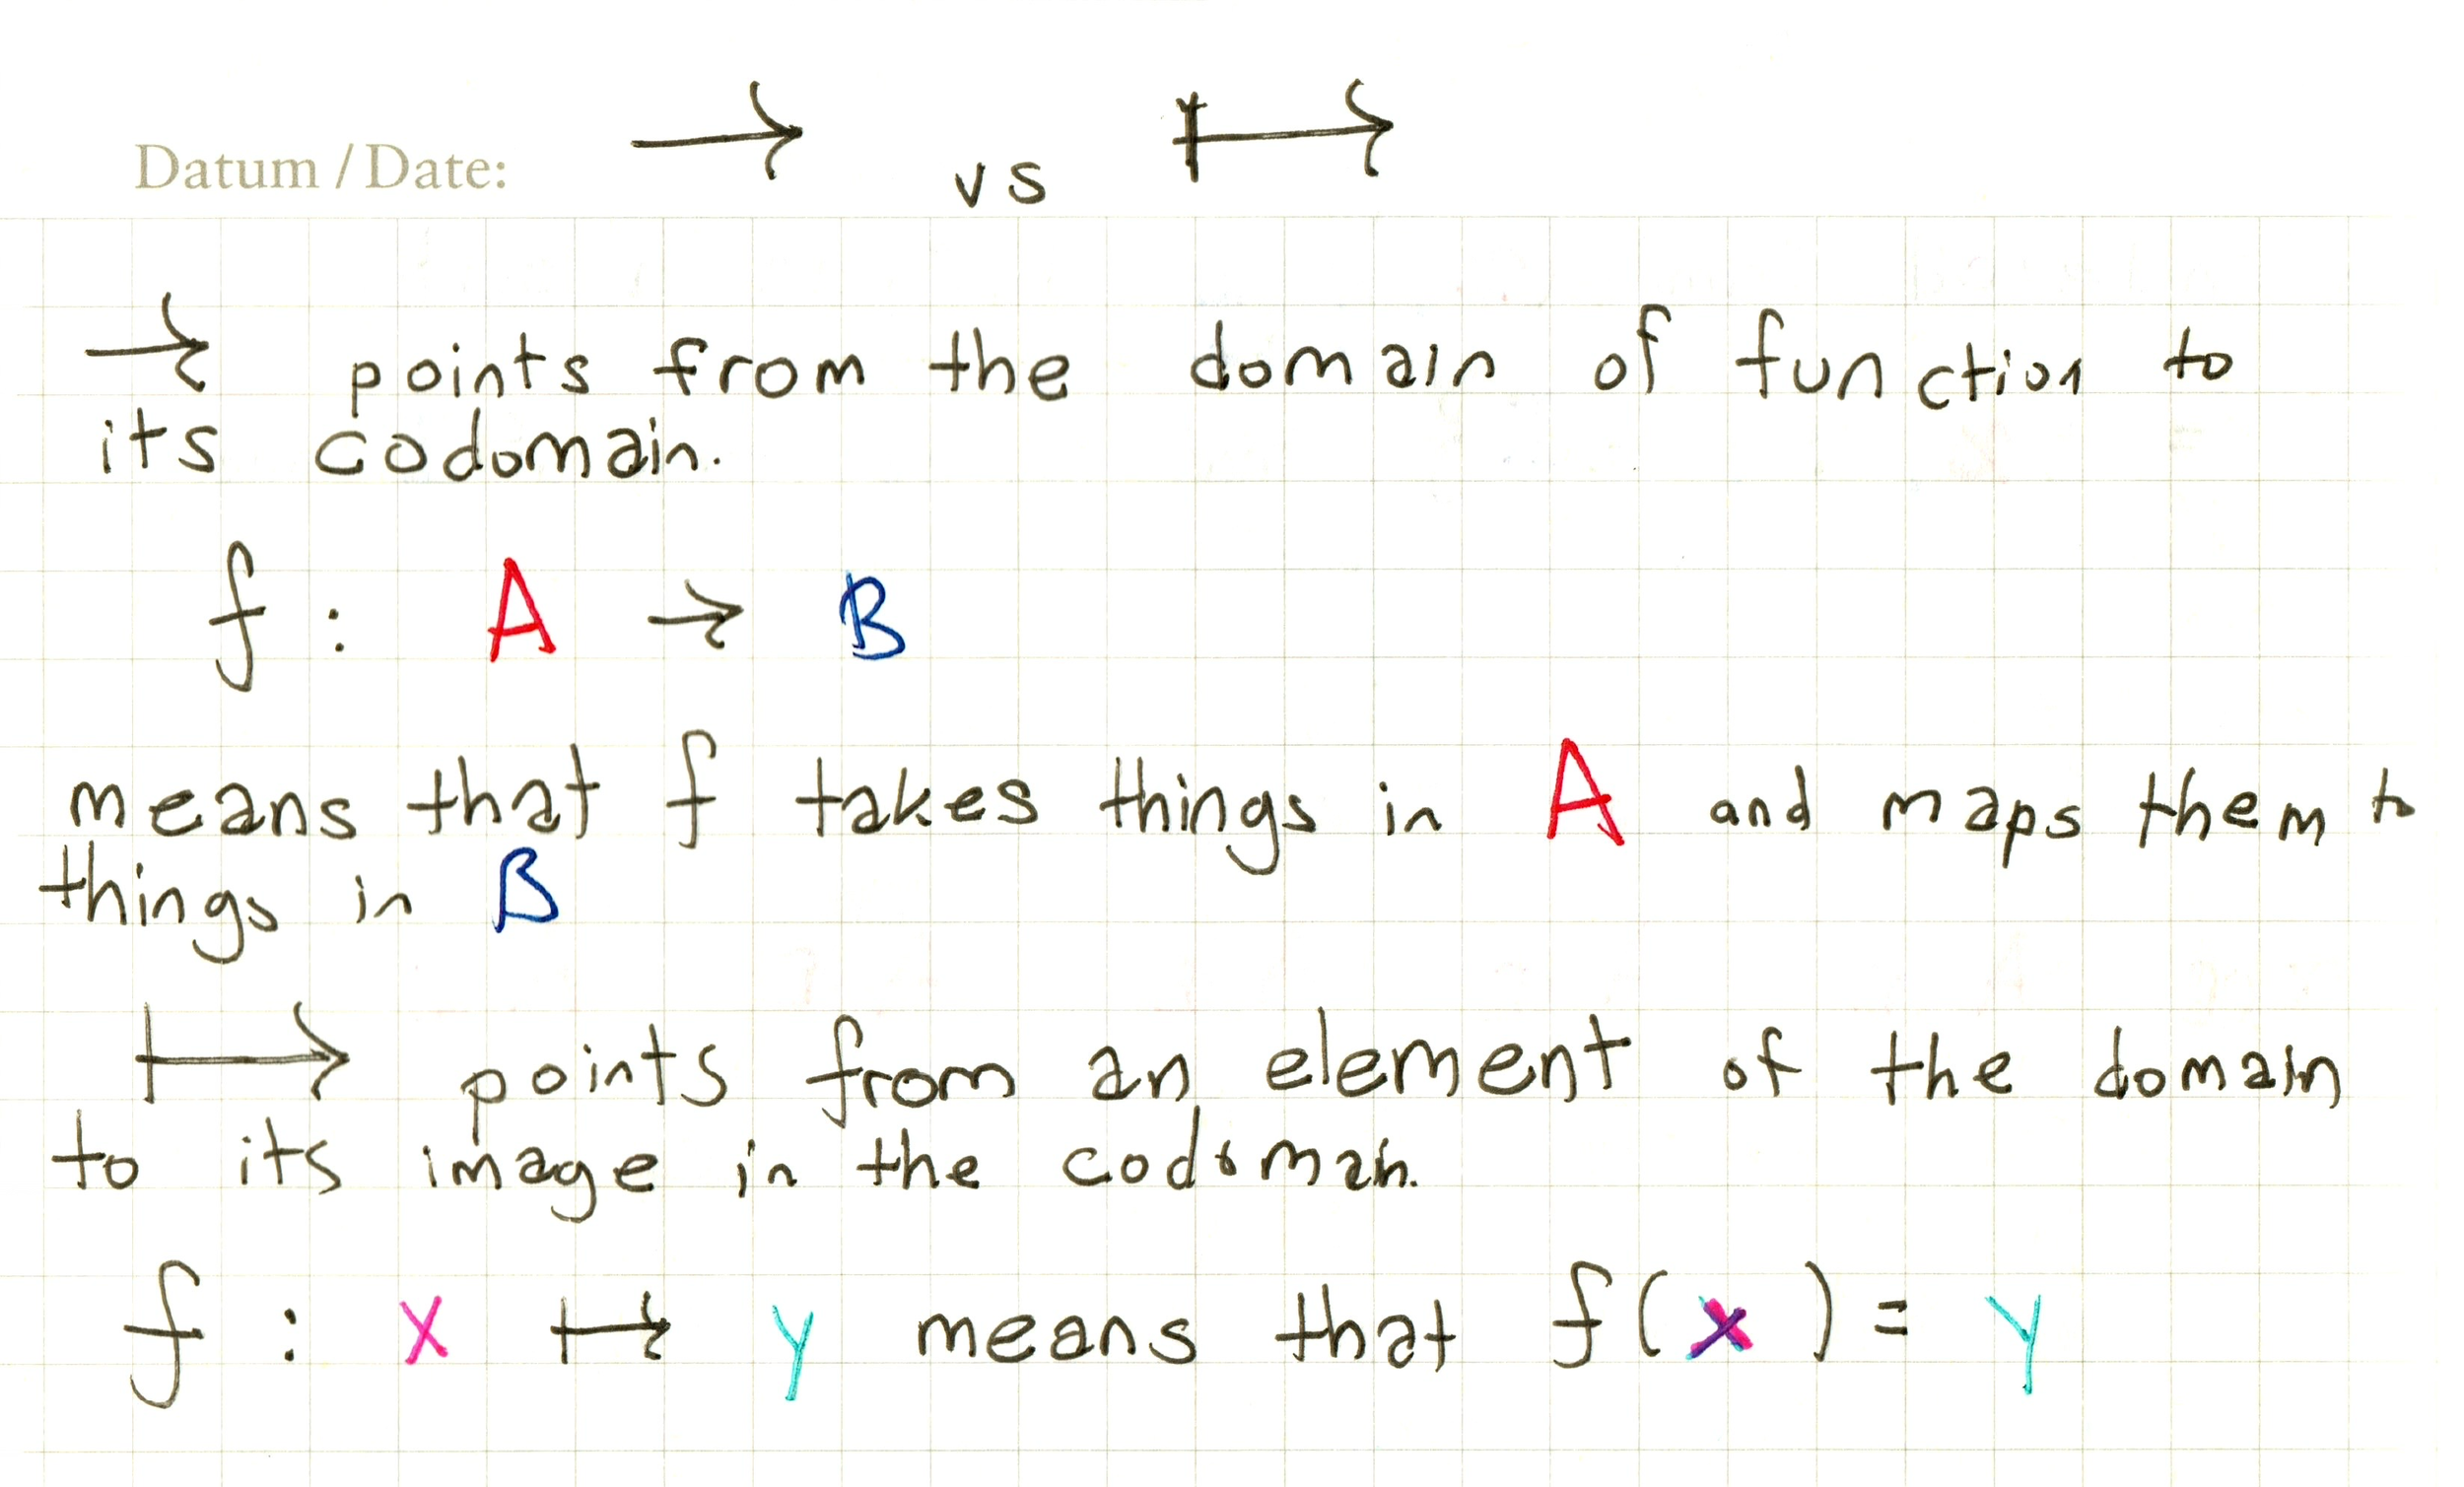 Datum / Date: → vs ↦
→ points from the domain of function to
its codomain.
f : A → B
means that f takes things in A and maps them to
things in B
↦ points from an element of the domain
to its image in the codomain.
f : x ↦ y means that f(x) = y